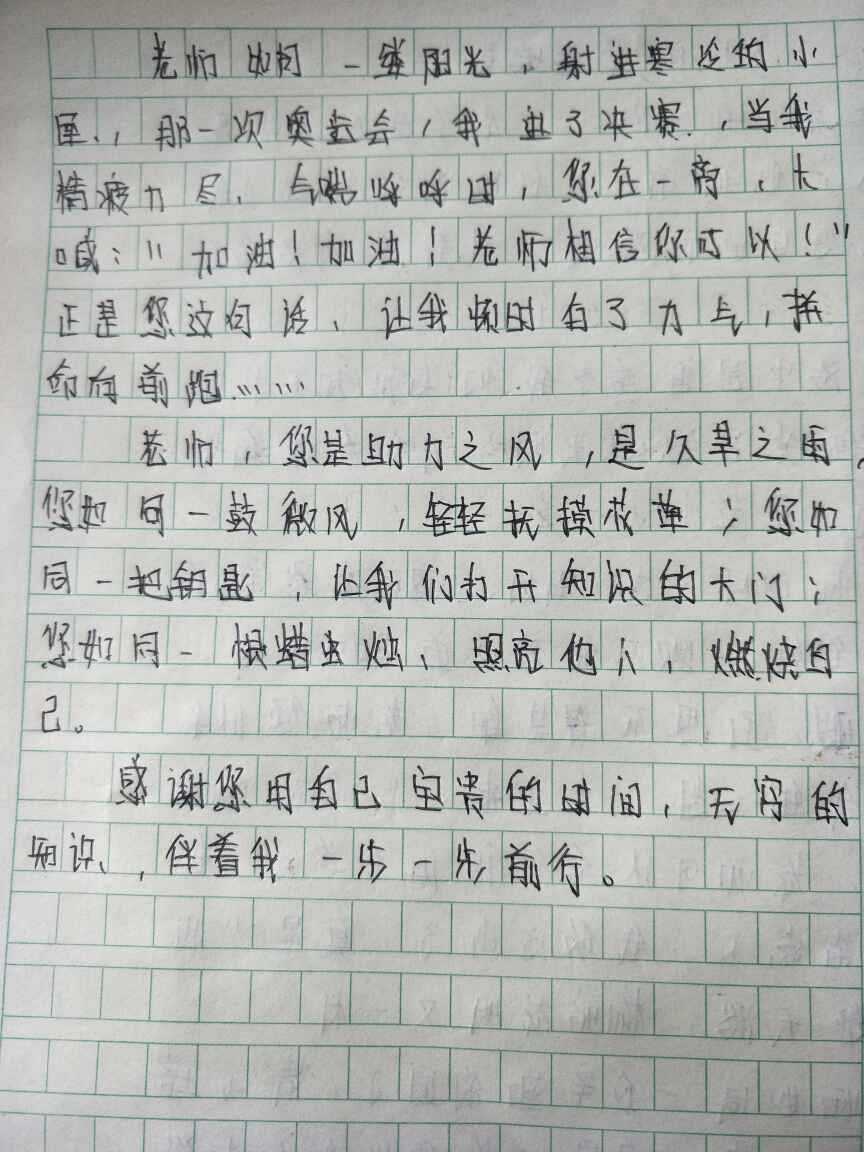 老师如同一缕阳光，射进寒冷的小
屋，那一次奥运会，我进了决赛，当我
精疲力尽、气喘呼呼时，您在一旁，大
喊：“加油！加油！老师相信你可以！”
正是您这句话，让我顿时有了力气，拼
命向前跑……
老师，您是助力之风，是久旱之雨，
您如同一鼓微风，轻轻抚摸花草；您如
同一把钥匙，让我们打开知识的大门；
您如同一根蜡虫烛、照亮他人，燃烧自
己。
感谢您用自己宝贵的时间，无穷的
知识，伴着我一步一步前行。